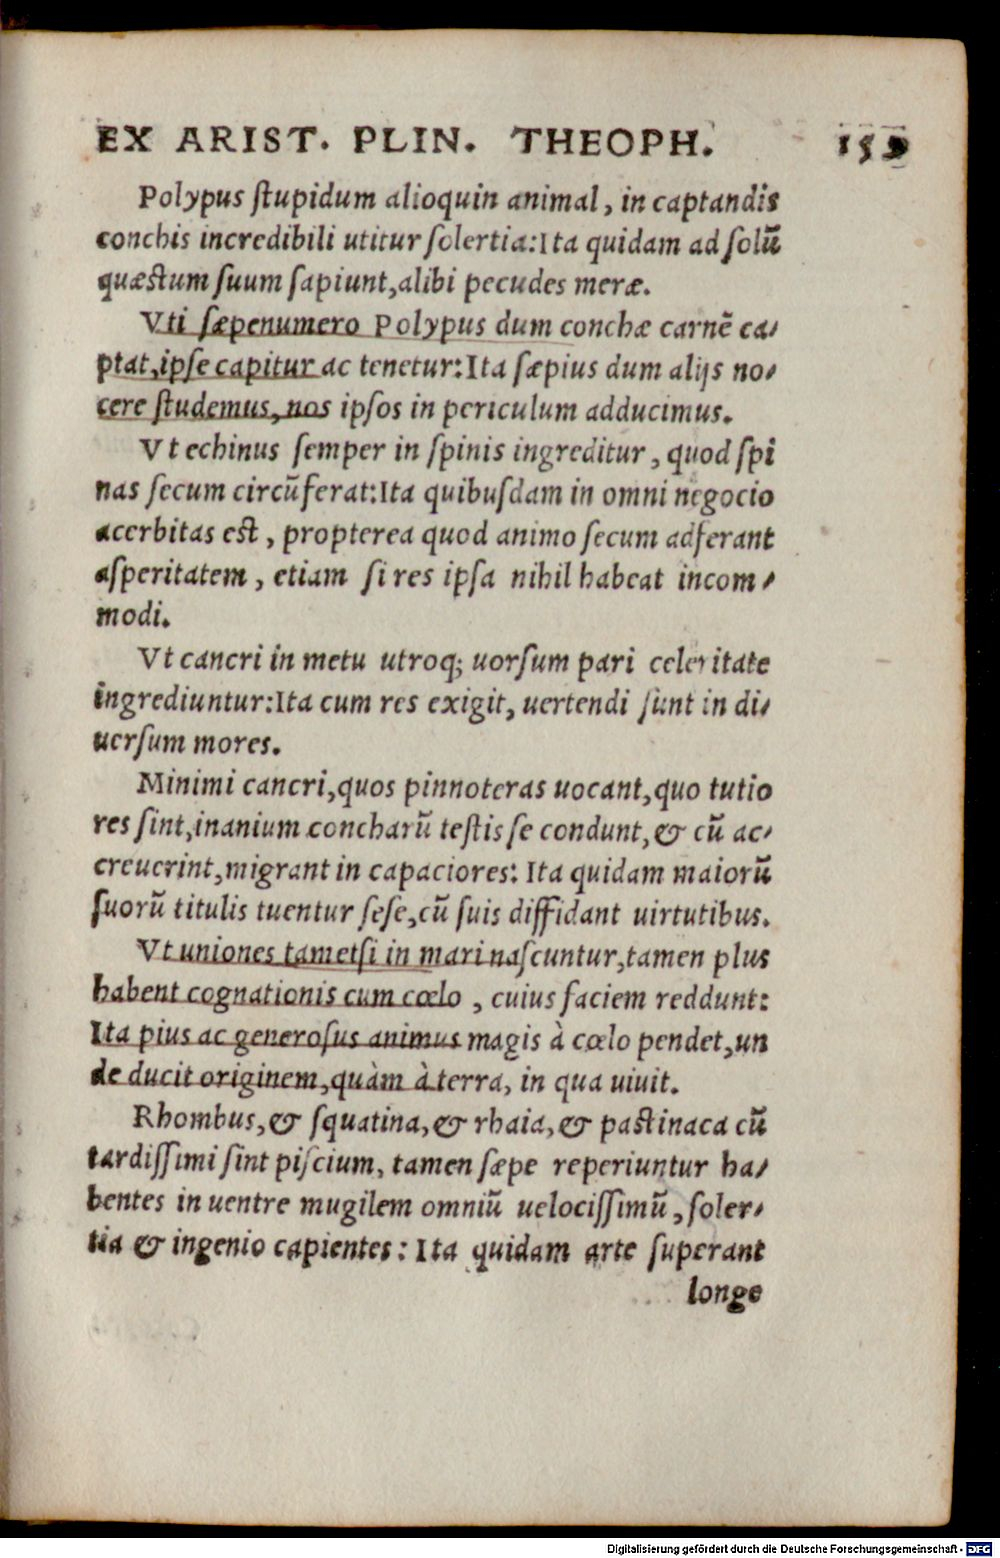 EX ARIST. PLIN. THEOPH. 159
Polypus ſtupidum alioquin animal, in captandis
conchis incredibili utitur ſolertia: Ita quidam ad ſolũ
quæſtum ſuum ſapiunt, alibi pecudes meræ.
Vti ſæpenumero Polypus dum conchæ carnẽ ca-
ptat, ipſe capitur ac tenetur: Ita ſæpius dum alijs no-
cere ſtudemus, nos ipſos in periculum adducimus.
Vt echinus ſemper in ſpinis ingreditur, quod ſpi
nas ſecum circũferat: Ita quibuſdam in omni negocio
acerbitas eſt, propterea quod animo ſecum adferant
aſperitatem, etiam ſi res ipſa nihil habeat incom-
modi.
Vt cancri in metu utroq; uorſum pari celeritate
ingrediuntur: Ita cum res exigit, uertendi ſunt in di-
uerſum mores.
Minimi cancri, quos pinnoteras uocant, quo tutio
res ſint, inanium concharũ teſtis ſe condunt, & cũ ac-
creuerint, migrant in capaciores: Ita quidam maiorũ
ſuorũ titulis tuentur ſeſe, cũ ſuis diffidant uirtutibus.
Vt uniones tametſi in mari naſcuntur, tamen plus
habent cognationis cum cœlo, cuius faciem reddunt:
Ita pius ac generoſus animus magis à cœlo pendet, un
de ducit originem, quàm à terra, in qua uiuit.
Rhombus, & ſquatina, & rhaia, & paſtinaca cũ
tardiſſimi ſint piſcium, tamen ſæpe reperiuntur ha-
bentes in uentre mugilem omniũ uelociſſimũ, ſoler-
tia & ingenio capientes: Ita quidam arte ſuperant
longe
Digitalisierung gefördert durch die Deutsche Forschungsgemeinschaft - DFG